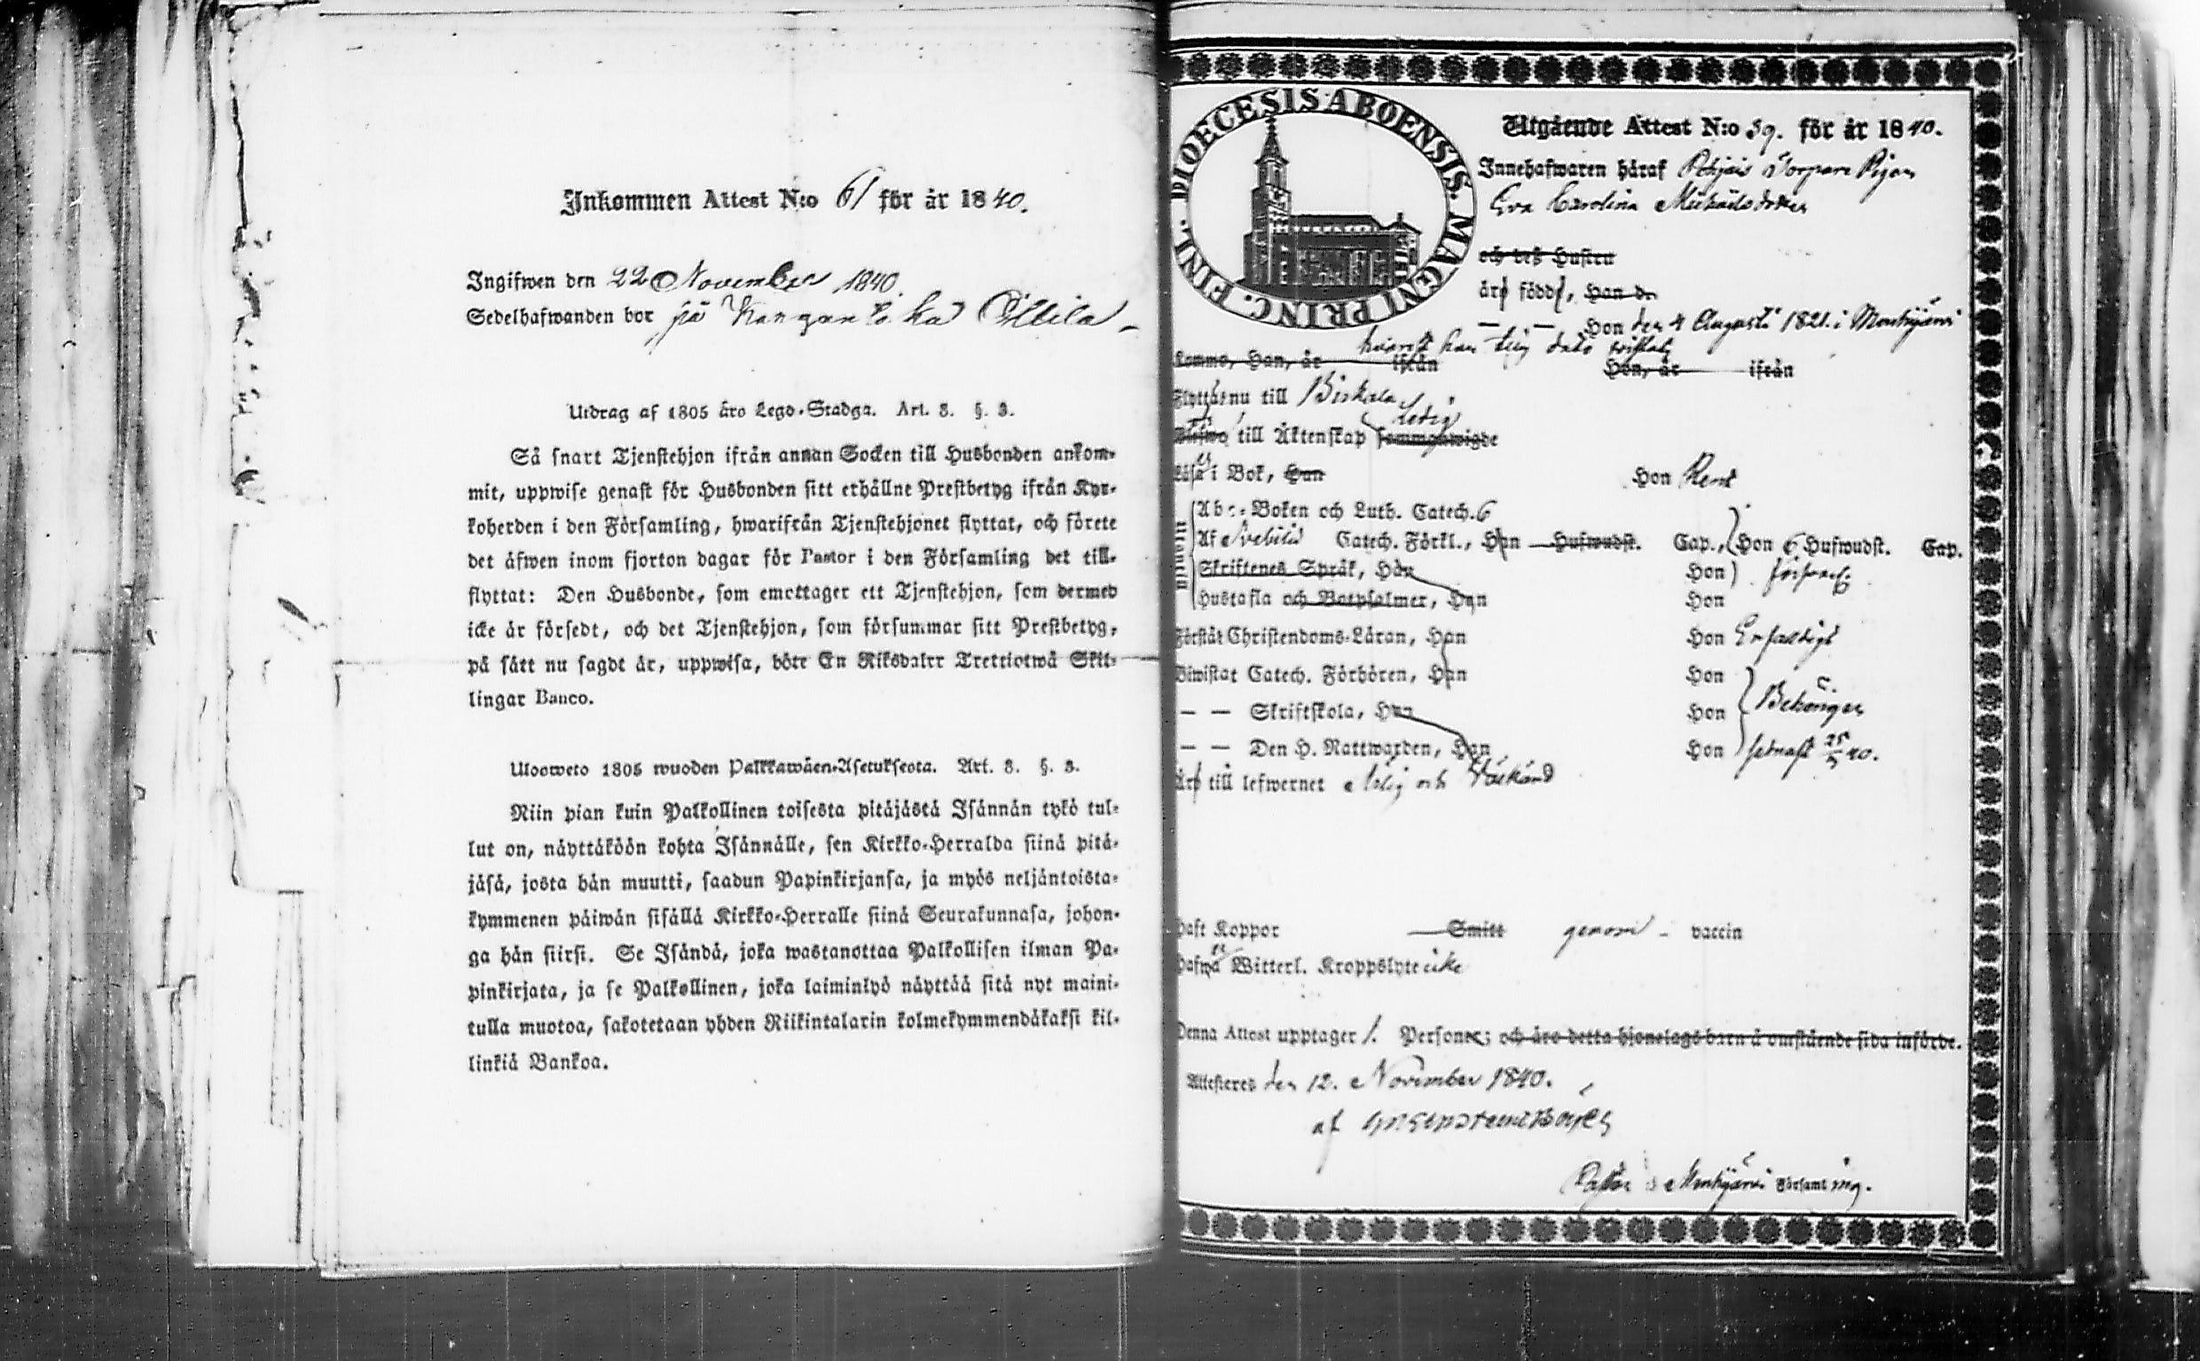 Inkommen Attest N:o 61 för år 1840.
Ingifwen den 22 November 1840.
Sedelhafwanden bor på
Utdrag af 1805 års Lego-Stadga. Art. 3. §. 3.
Så snart Tjenstehjon ifrån annan Socken till Husbonden ankom-
mit, uppwise genast för Husbonden sitt erhållne Prestbetyg ifrån Kyr-
koherden i den Församling, hwarifrån Tjenstehjonet flyttat, och förete
det äfwen inom fjorton dagar för Pastor i den Församling det till-
flyttat: Den Husbonde, som emottager ett Tjenstehjon, som dermed
icke är försedt, och det Tjenstehjon, som försummar sitt Prestbetyg,
på sätt nu sagdt är, uppwisa, böte En Riksdaler Trettiotwå Skil-
lingar Banco.
Ulosweto 1805 wuoden Palkkawäen-Asetuksesta. Art. 3. §. 3.
Niin pian kuin Palkollinen toisesta pitäjästä Isännän tykö tul-
lut on, näyttäköön kohta Isännälle, sen Kirkko-Herralda siinä pitä-
jäsä, josta hän muutti, saadun Papinkirjansa, ja myös neljäntoista-
kymmenen päiwän sisällä Kirkko-Herralle siinä Seurakunnasa, johon-
ga hän siirsi. Se Isändä, joka wastanottaa Palkollisen ilman Pa-
pinkirjata, ja se Palkollinen, joka laiminlyö näyttää sitä nyt maini-
tulla muotoa, sakotetaan yhden Riikintalarin kolmekymmendäkaksi kil-
linkiä Bankoa.
DIOECESIS ABOENSIS. MAGNI PRINC. FINL.
Utgående Attest N:o 59. för år 1840.
Innehafwaren häraf Torpare Pigan
Eva Carolina Michaelsdotter
och deß Hustru
är född, Han d.
— — Hon den 4 Augusti 1821. i Mouhijärvi
Komne, Han, år ifrån Hon, år ifrån
Flyttar nu till Biskala
Ledig
till Äktenskap sammanwigde
Läser i Bok, Han Hon Rent
Utantill
Abc-Boken och Luth. Catech. 6
Af Svebilii Catech. Förkl., Han Hufwudst. Cap., Hon 6 Hufwudst. Cap.
Skriftenes Språk, Han Hon
Hustafla och Botpsalmer, Han Hon
Förstår Christendoms-Läran, Han Hon Enfaldigt
Biwistat Catech. Förhören, Han Hon
— — Skriftskola, Han Hon Behörigen
— — Den H. Nattwarden, Han Hon senast 40.
Är till lefwernet ärlig och
Haft Koppor Smitt genom vaccin
Hafwer Witterl. Kroppslyte icke
Denna Attest upptager 1. Person; och äro detta hjonelags barn å omstående sida införde.
Attesteres den 12. November 1840.
af
Pastor i Mouhijärvi Församling.